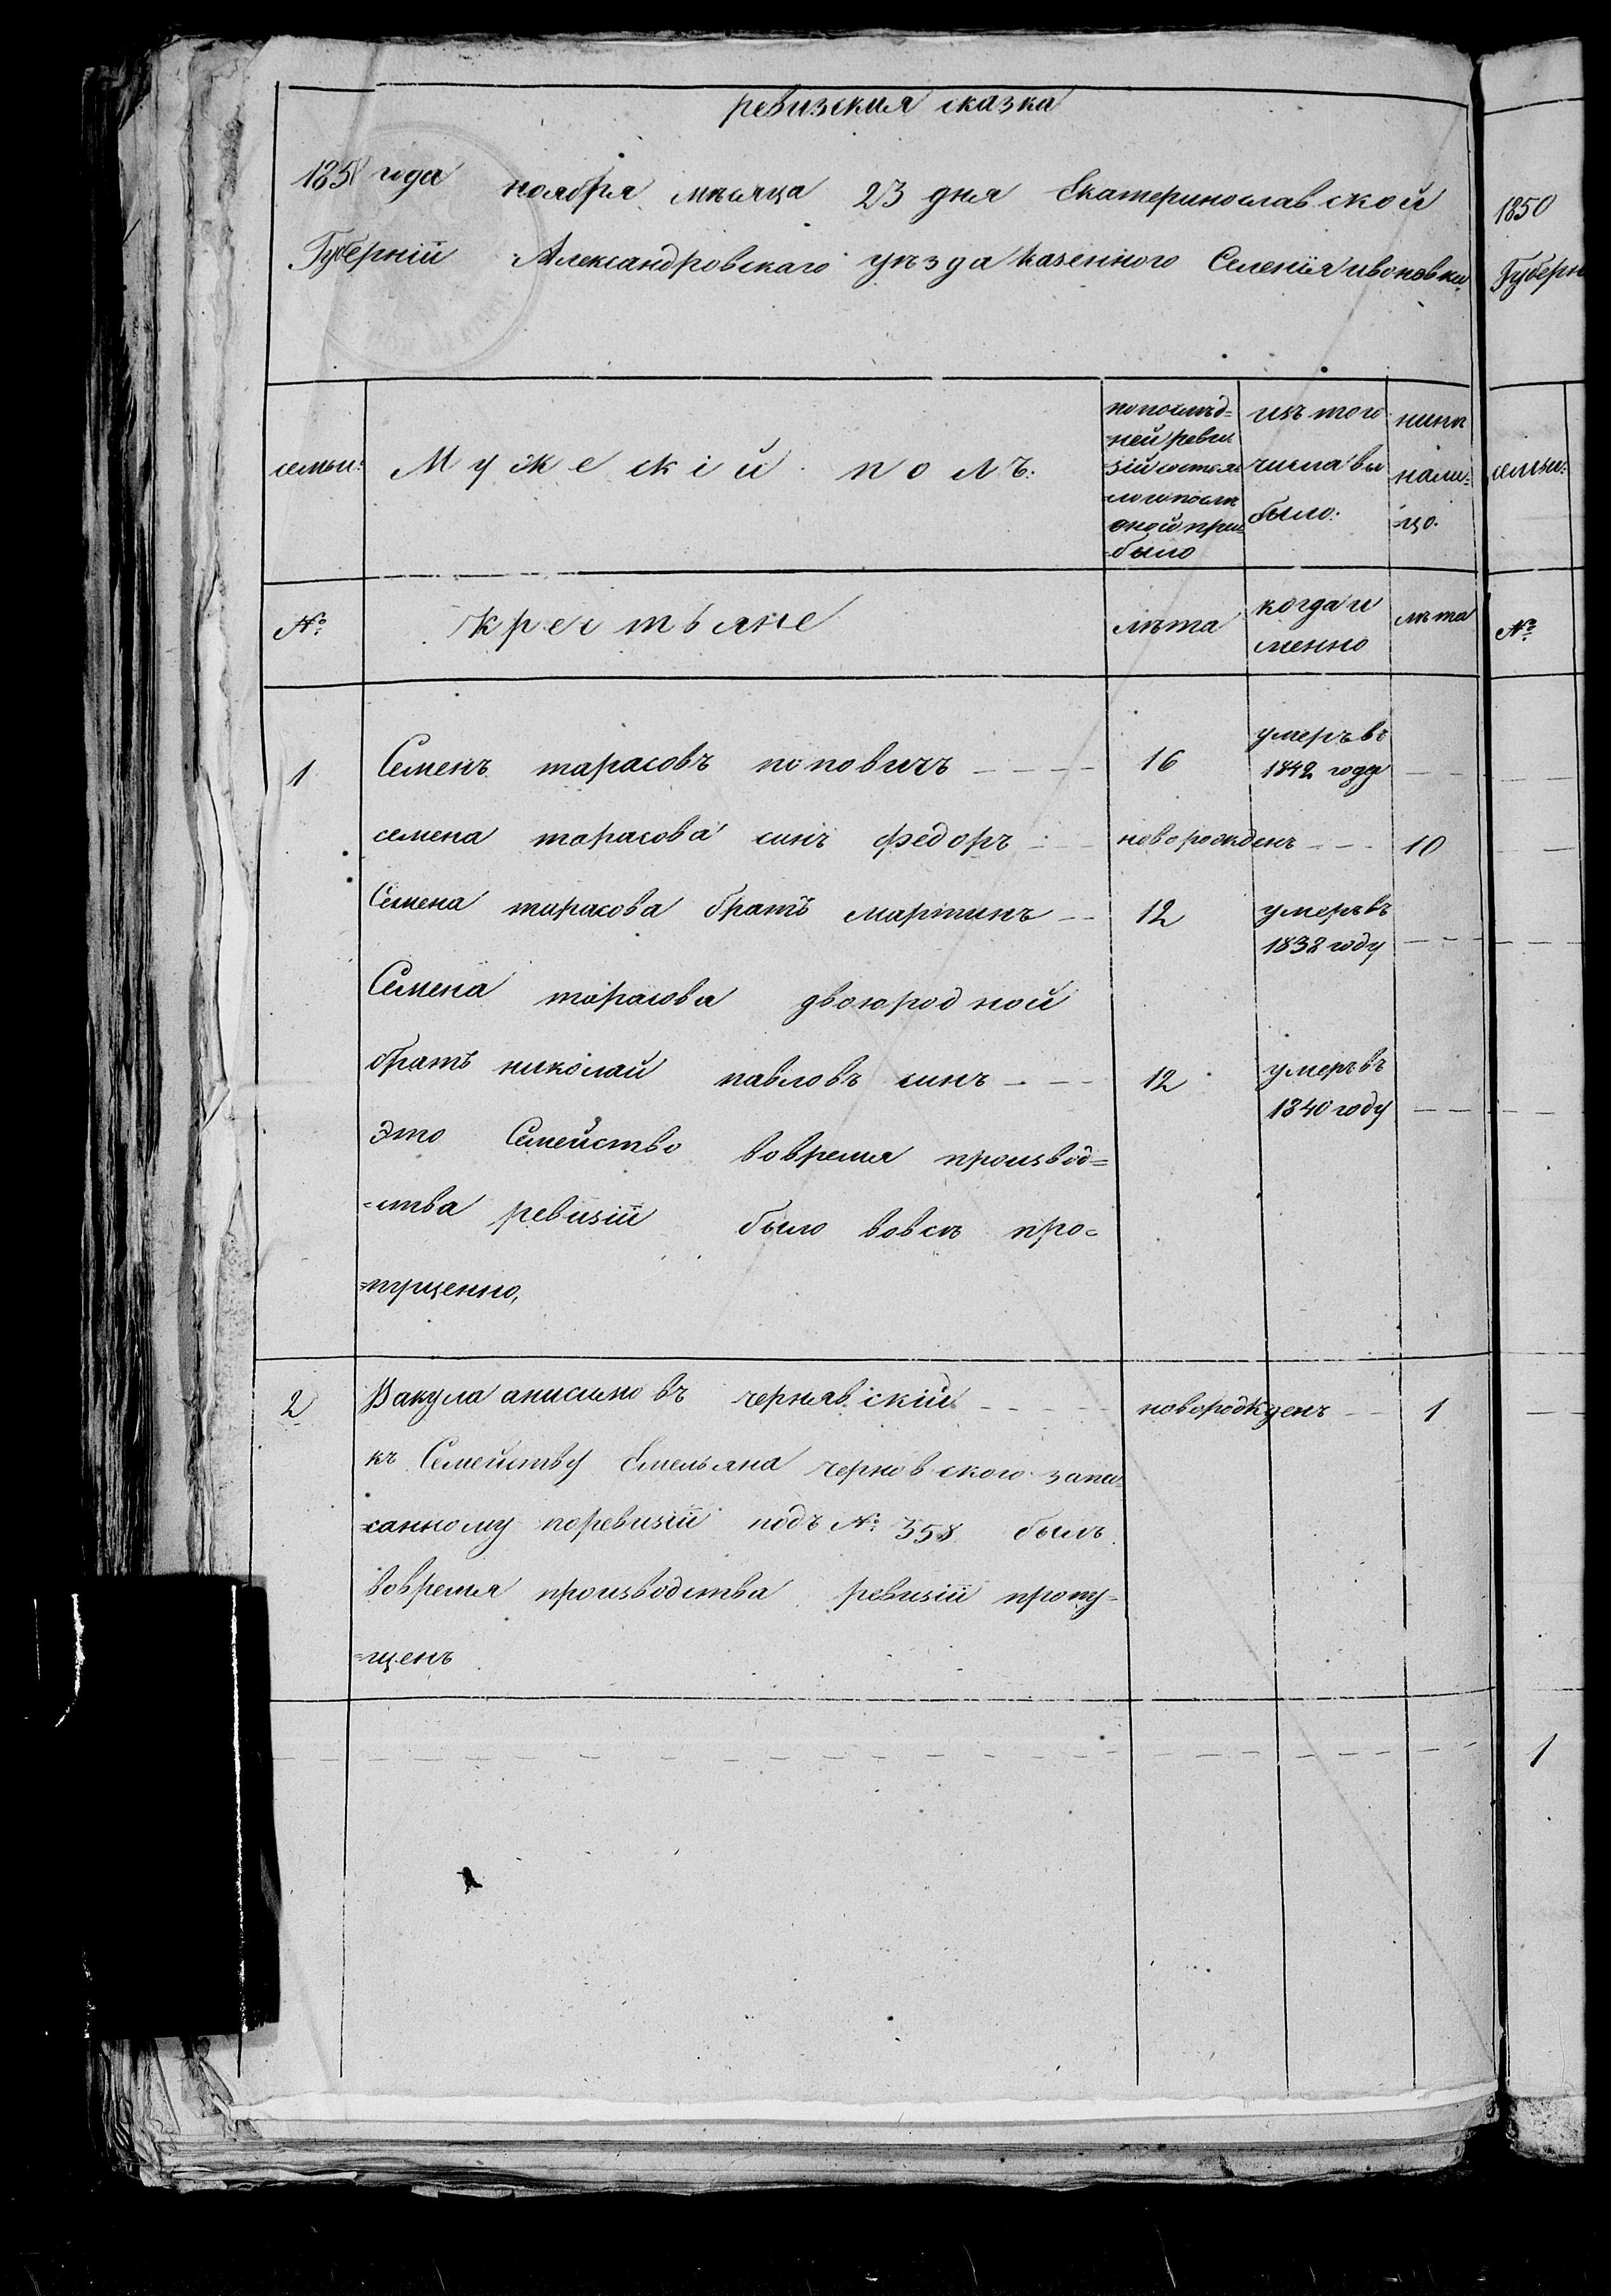 ревизския сказка
1850 года ноября мѣсяца 23 дня Екатеринославской
Губерніи Александровскаго уѣзда казенного Селенія ивоновки
семьи:
Мужескій полъ.
попослѣд=
=ней реви
зіи состоя
ло ипослѣ
оной при=
=было
изъ того
числа вы
было:
нынѣ
нали=
=цо.
№
крестьяне
лѣта
когда и
менно
лѣта
1 Семенъ тарасовъ поповичъ 16 умеръ въ 1842 году
семена тарасова сынъ федоръ новорожденъ 10
Семена тарасова братъ мартинъ 12 умеръ въ 1838 году
Семена тарасова двоюродной
братъ николай павловъ сынъ 12 умеръ въ 1840 году
Это Семейство вовремя производ=
=ства ревизіи было вовсѣ про=
=пущенно,
2 Вакула анисимовъ чернявскій новорожденъ 1
къ Семейству Емельяна черновского запи
=санному поревизіи подъ № 358 былъ
вовремя производства ревизіи пропу=
=щенъ
1850
Губерн
семьи:
№
1